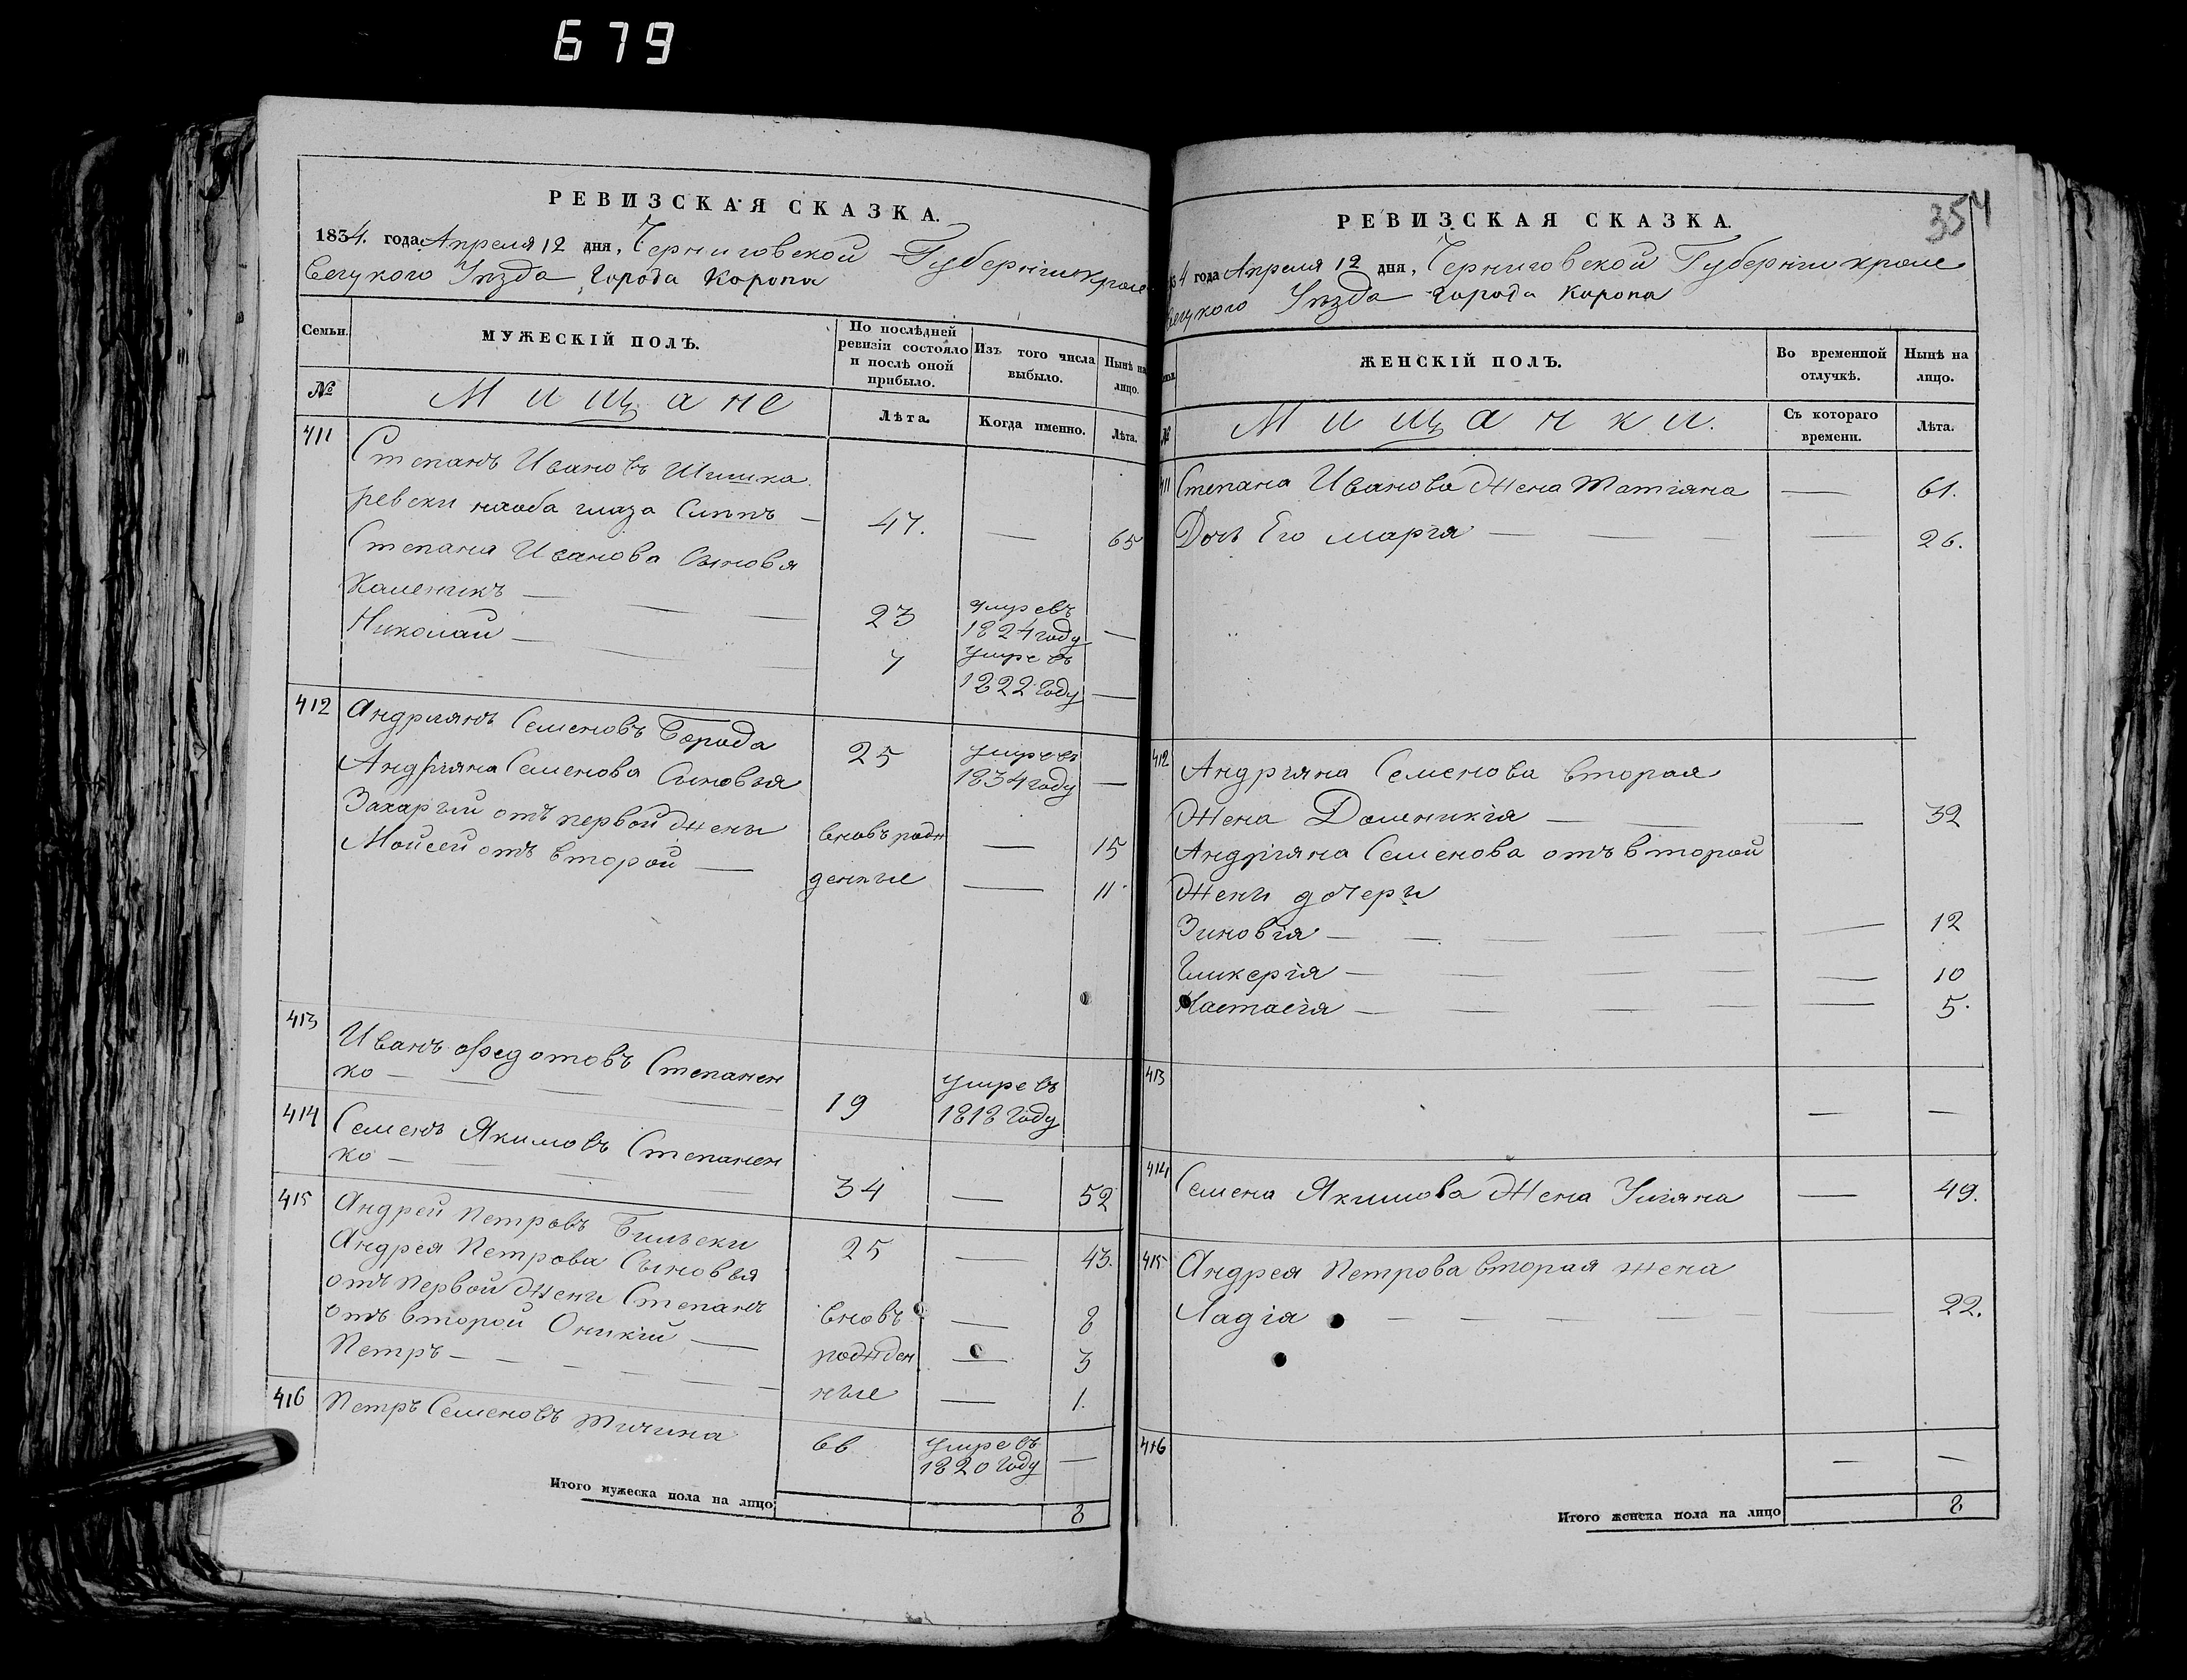 679
РЕВИЗСКАЯ СКАЗКА.
1834. года Апреля 12 дня, Черниговской Губерніи кроле
вецкого Уезда, города Коропа
Семьи.
МУЖЕСКІЙ ПОЛЪ.
По послѣдней ревизіи состояло и послѣ оной прибыло.
Изъ того числа выбыло.
Нынѣ на лицо.
№
Мищане
Лѣта.
Когда именно.
Лѣта.
411
Степанъ Ивановъ Шишка
ревски наоба глаза Слѣпъ — 47. — 65
Степана Иванова Сыновя
Каленикъ — 23 умре въ 1824 году —
Николай — 7 умре въ 1822 году —
412 Андріянъ Семеновъ Борода 25 умре въ 1834 году —
Андріяна Семенова Сыновья
Захаръій отъ первой жены вновь рож — 15
Мойсей отъ второй — денные — 11
413
Иванъ Федотовъ Степанен
ко — 19 умре въ 1818 году
414 Семенъ Якимовъ Степанен
ко — 34 — 52
415 Андрей Петровъ Бильски 25 — 43.
Андрея Петрова Сыновья
отъ первой жени Степанъ вновь — 8
отъ второй Оникій — рожден — 3
Петръ — ные — 1.
416 Петръ Семеновъ Тичина 66 умре въ 1820 году —
Итого мужеска пола на лицо 8
354
РЕВИЗСКАЯ СКАЗКА.
4 года Апреля 12 дня, Черниговской Губерніи кроле
вецкого Уезда города Коропа
ЖЕНСКІЙ ПОЛЪ.
Во временной отлучкѣ.
Нынѣ на лицо.
№
Мищанки.
Съ котораго времени.
Лѣта.
411 Степана Иванова жена Татіяна — 61.
Дочъ Его марія — 26.
412 Андріяна Семенова вторая
жена Доменикія — 32
Андріяна Семенова отъ второй
жени дочеры
Зиновія — 12
Гликерія — 10
Настасія — 5.
413 — —
414 Семена Якимова жена Уліяна — 49.
415 Андрея Петрова вторая жена
— 22.
416 — —
Итого женска пола на лицо 8